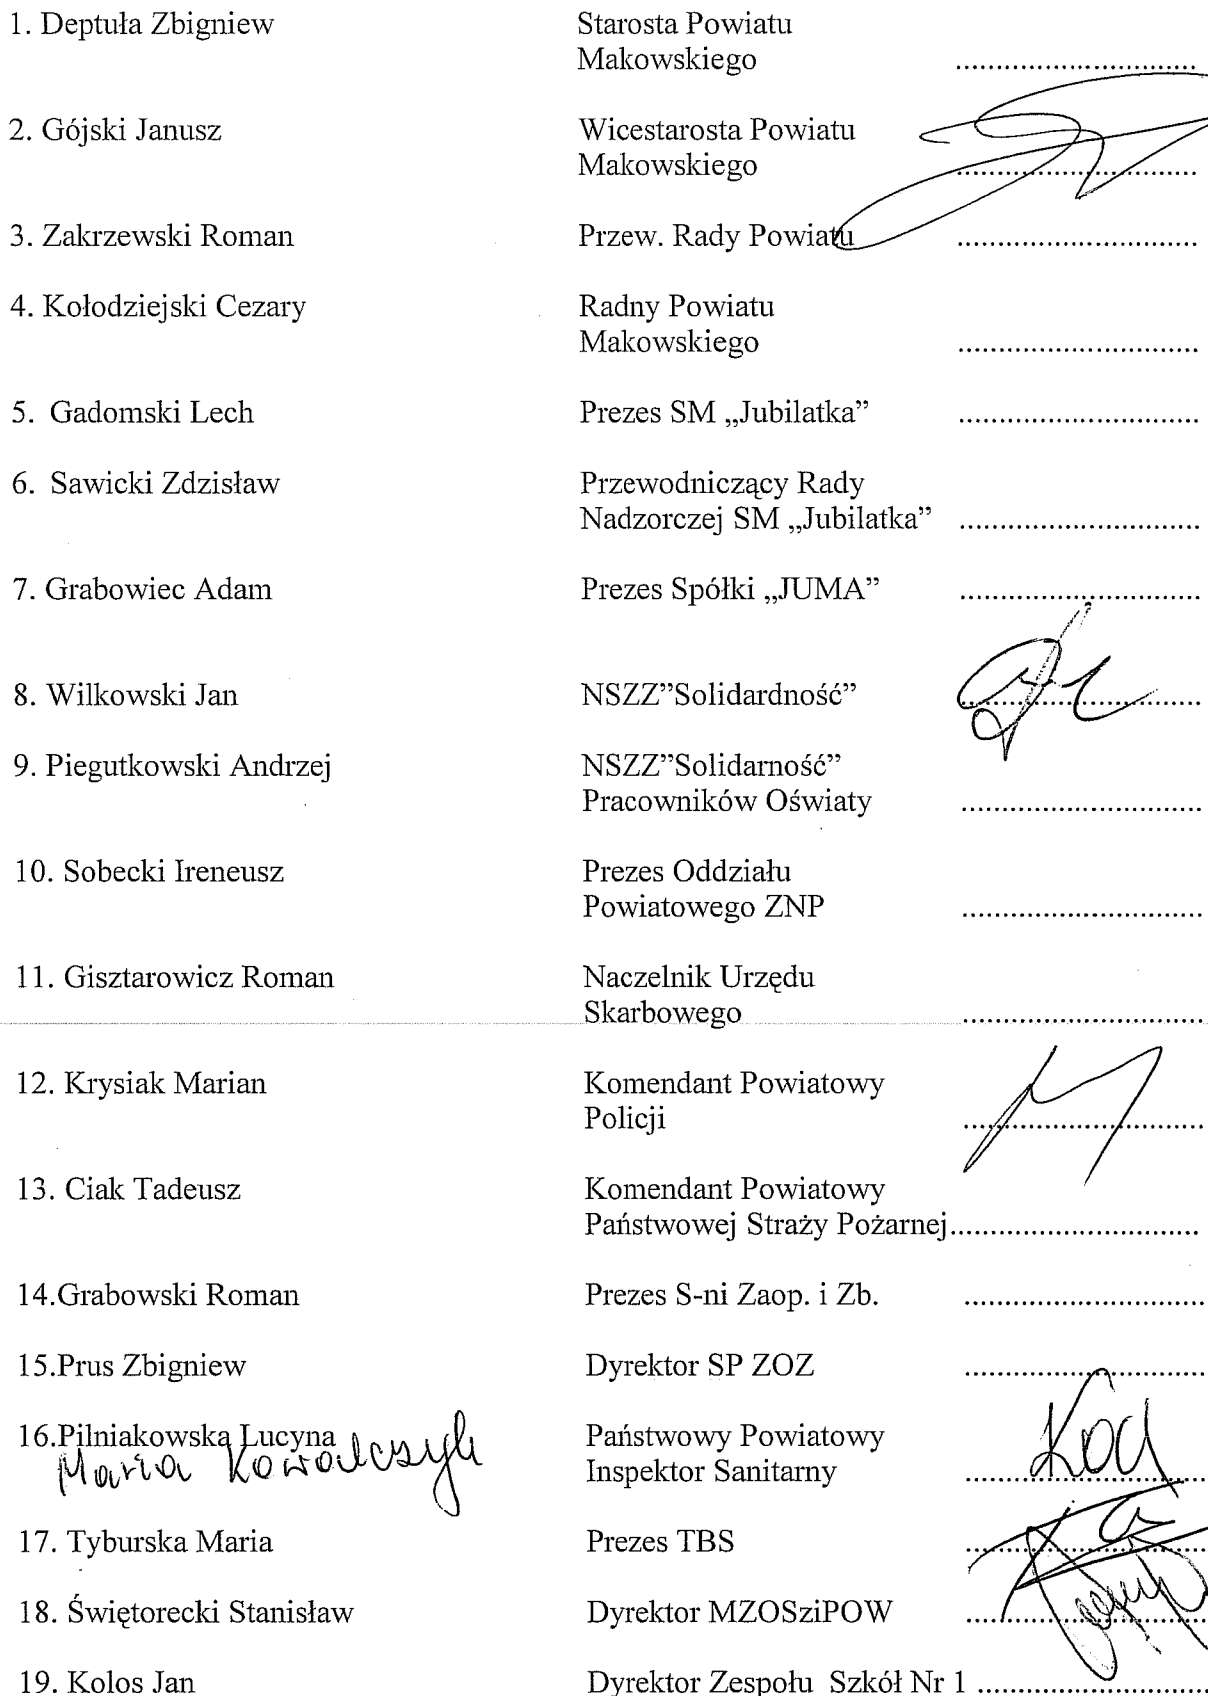 1. Deptuła Zbigniew Starosta Powiatu
Makowskiego ..............................
2. Gójski Janusz Wicestarosta Powiatu
Makowskiego ..............................
3. Zakrzewski Roman Przew. Rady Powiatu ..............................
4. Kołodziejski Cezary Radny Powiatu
Makowskiego ..............................
5. Gadomski Lech Prezes SM „Jubilatka” ..............................
6. Sawicki Zdzisław Przewodniczący Rady
Nadzorczej SM „Jubilatka” ..............................
7. Grabowiec Adam Prezes Spółki „JUMA” ..............................
8. Wilkowski Jan NSZZ”Solidardność” ..............................
9. Piegutkowski Andrzej NSZZ”Solidarność”
Pracowników Oświaty ..............................
10. Sobecki Ireneusz Prezes Oddziału
Powiatowego ZNP ..............................
11. Gisztarowicz Roman Naczelnik Urzędu
Skarbowego ..............................
12. Krysiak Marian Komendant Powiatowy
Policji ..............................
13. Ciak Tadeusz Komendant Powiatowy
Państwowej Straży Pożarnej..............................
14.Grabowski Roman Prezes S-ni Zaop. i Zb. ..............................
15.Prus Zbigniew Dyrektor SP ZOZ ..............................
16.Pilniakowska Lucyna Państwowy Powiatowy
Maria Kowalczyk Inspektor Sanitarny ..............................
17. Tyburska Maria Prezes TBS ..............................
18. Świętorecki Stanisław Dyrektor MZOSziPOW ..............................
19. Kolos Jan Dyrektor Zespołu Szkół Nr 1 ..............................